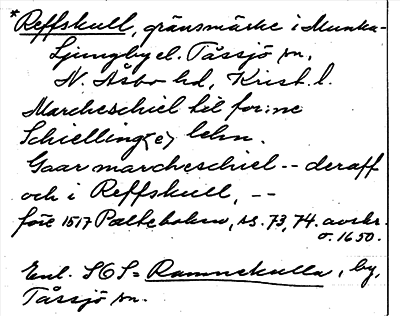 *Reffskull, gränsmärke i Munka-
Ljungby el. Tåssjö sn,
N. Åsbo hd, Krist. l.
Marcheschiel till for:ne
Schielling<e> lehn.
Gaar marcheschiel -- deraff
och i Reffskull, --
före 1517 Palteboken, ss. 73, 74. avskr.
o. 1650.
Enl. SOS = Ramnekulla, by,
Tåssjö sn.